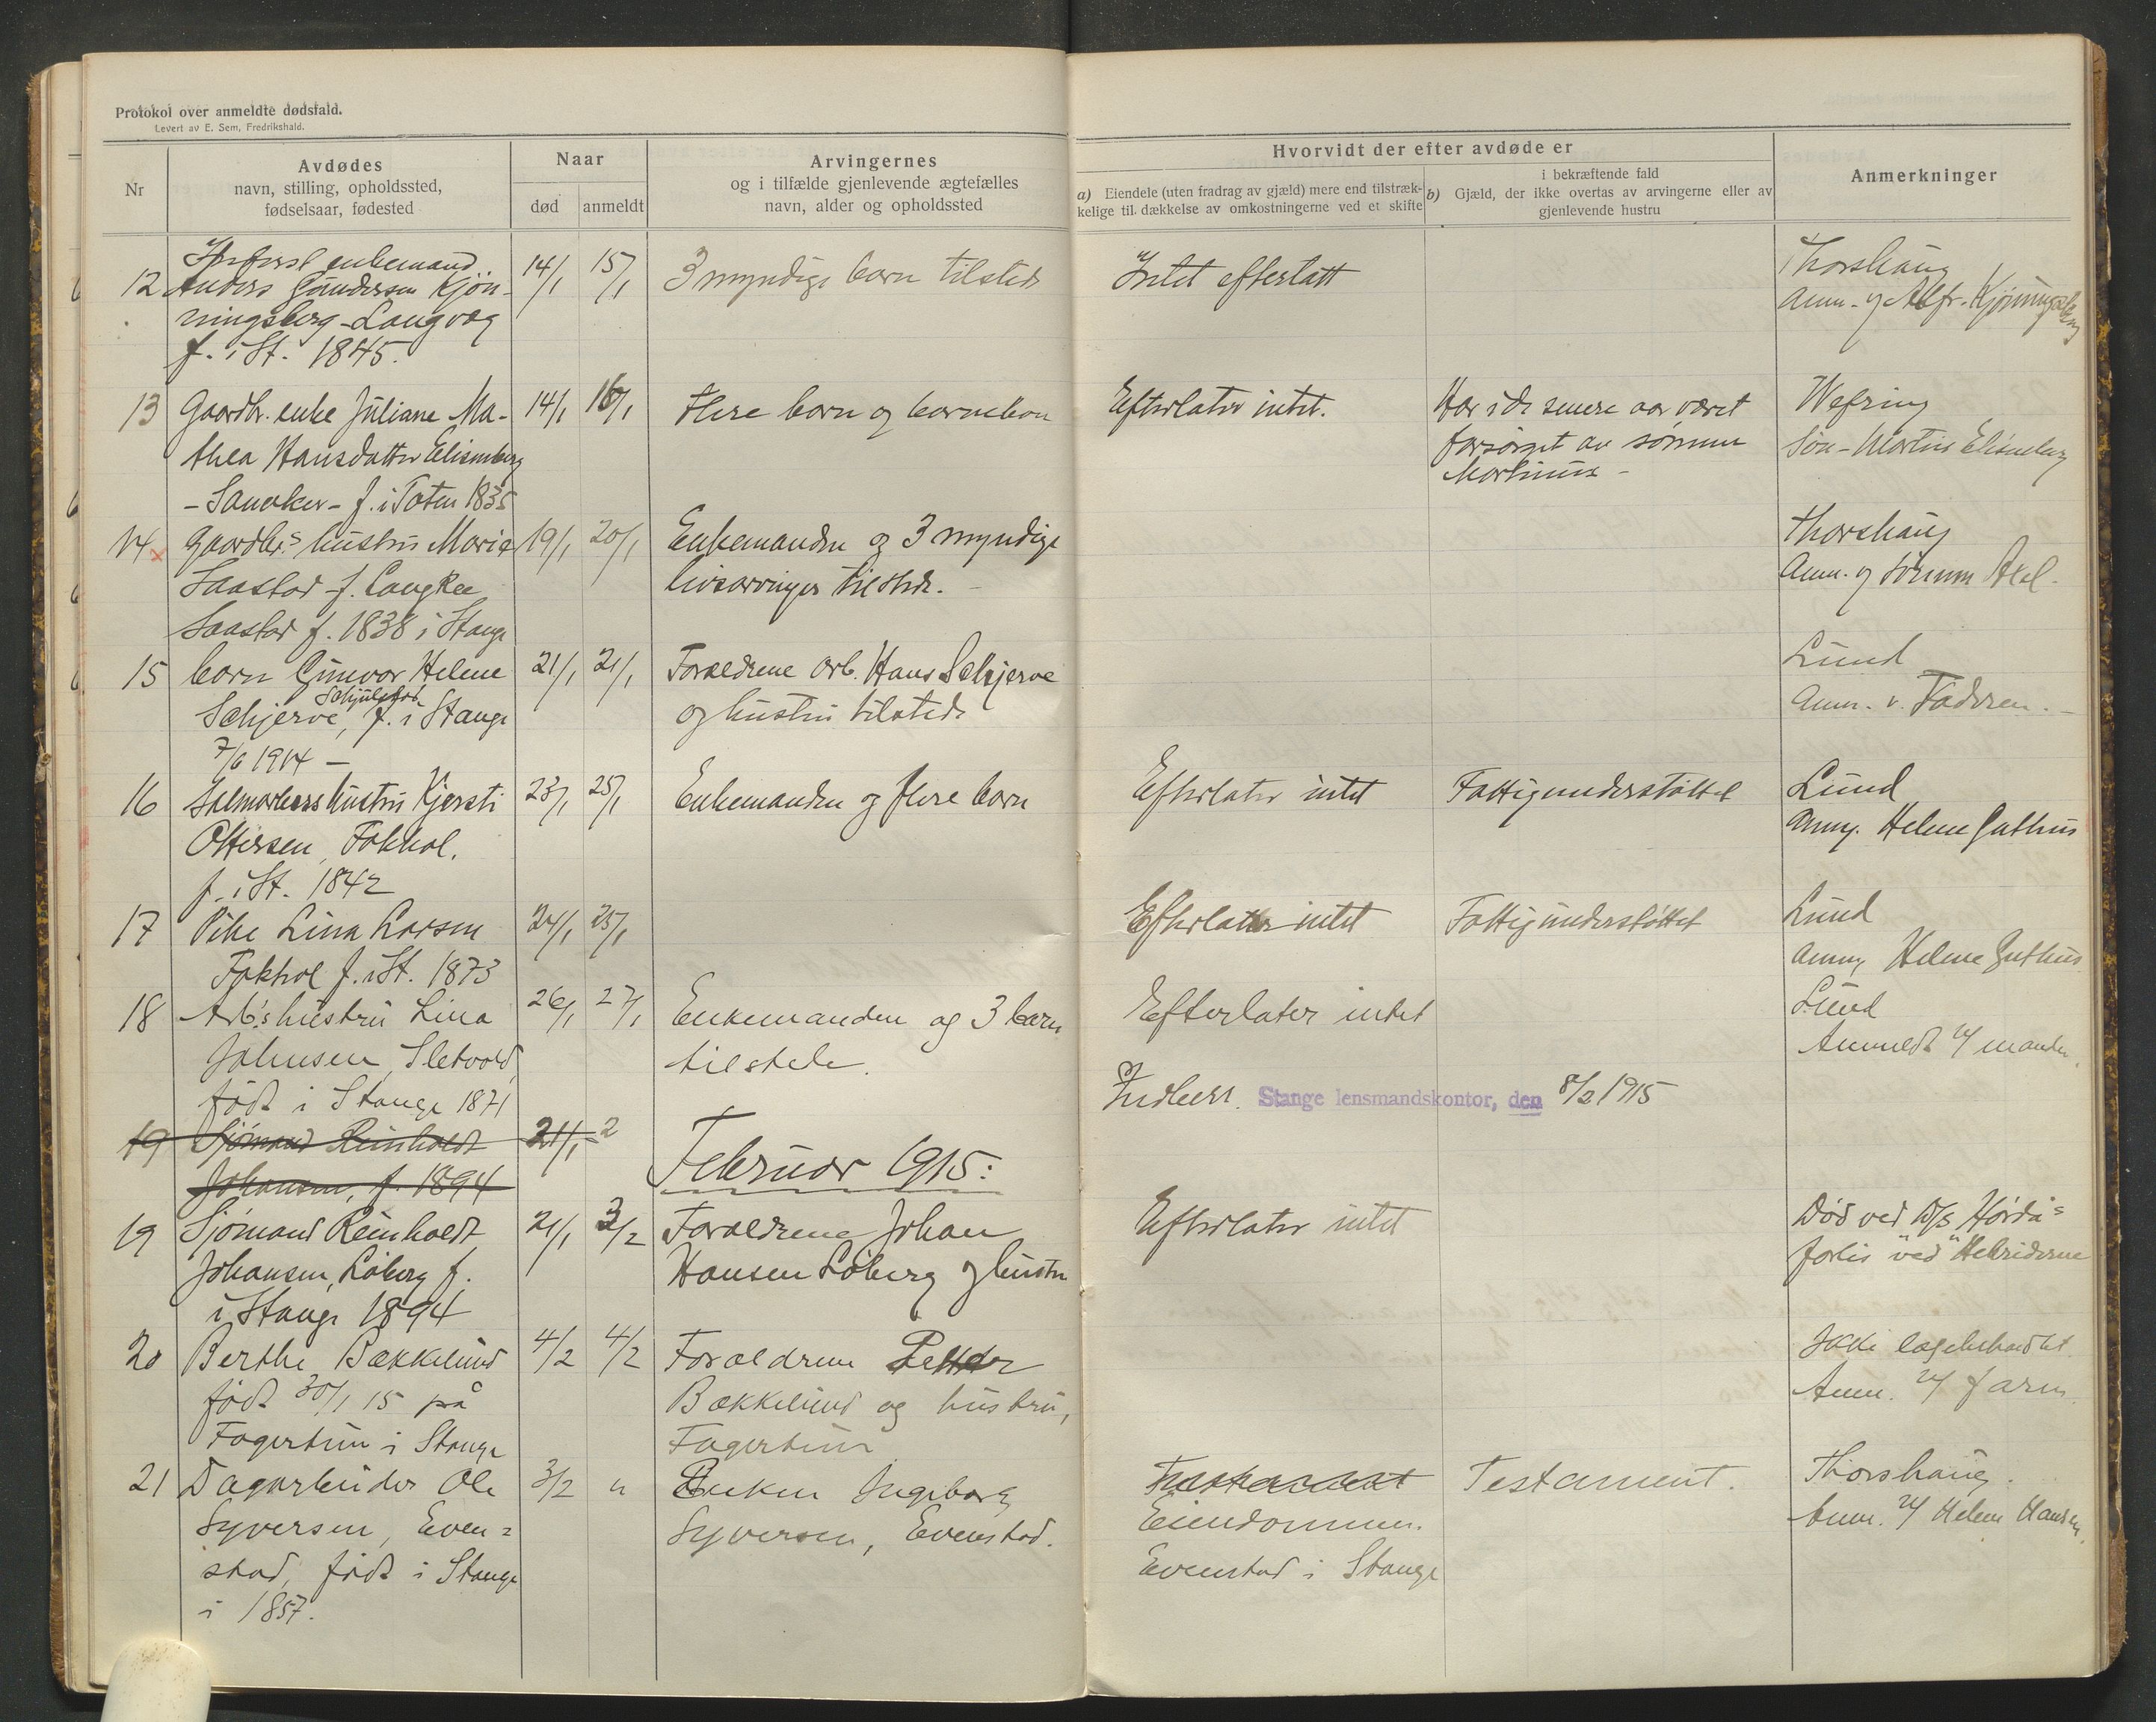 Protokol over anmeldte dødsfald.
Levert av E. Sem, Fredrikshald.
Nr
Avdødes
navn, stilling, opholdssted,
fødselsaar, fødested
Naar
død
anmeldt
Arvingernes
og i tilfælde gjenlevende ægtefælles
navn, alder og opholdssted
Hvorvidt der efter avdøde er
a) Eiendele (uten fradrag av gjæld) mere end tilstræk-
kelige til dækkelse av omkostningerne ved et skifte
i bekræftende fald
b) Gjæld, der ikke overtas av arvingerne eller av
gjenlevende hustru
Anmerkninger
12
enkemand
Anders Gundersen Kjøn-
ningsberg - Langvag
f. i St. 1845.
14/1
15/1
3 myndige børn tilstede
Intet efterlatt
Thorshaug
Anm. af Alfr. Kjønningsberg
13
Gaardbr. enke Juliane Ma-
thea Hansdatter Elisenberg
- Sanaker - f. i Toten 1835
14/1
16/1
Flere børn og børnebørn
Efterlater intet.
Har i de senere aar været
forsørget av sønnen
Martinius -
Wefring
Søn - Martin Elisenberg
14
Gaardbr's hustru Marie
Saastad f. Langkee
Saastad f. 1838 i Stange
19/1
20/1
Enkemanden og 3 myndige
livsarvinger tilstede. -
Thorshaug
Anm. af sønnen Axel.
15
barn Gunvor Helene
Schjerve, Schjulstad f. i Stange
7/6 1914 -
21/1
21/1
Forældrene arb. Hans Schjerve
og hustru tilstede
Lund
Anm. v. Faderen. -
16
hustru Kjersti
Ottersen, Fokhol.
f. i St. 1842
23/1
25/1
Enkemanden og flere børn
Efterlater intet
Fattigunderstøttet
Lund
Anm. Helene Guthus
17
Pike Lina Larsen
Fokhol f. i St. 1873
24/1
25/1
Efterlater intet
Fattigunderstøttet
Lund
Anm. Helene Guthus
18
Arb's hustru Lina
Johnsen, Sletvold,
født i Stange 1871
26/1
27/1
Enkemanden og 3 barn
tilstede.
Efterlater intet
Lund
Anmeldt af manden.
Indber. Stange lensmandskontor, den 8/2 1915
19 Sjømand Reinholdt
Johansen, f. 1894
21/1
2
Februar 1915:
19
Sjømand Reinholdt
Johansen, Løberg f.
i Stange 1894
21/1
3/2
Forældrene Johan
Hansen Løberg og hustru
Efterlater intet
Død ved D/S "Hørda"s
forlis ved Hebriderne
20
Berthe Bækkelund
født 30/1 15 på
Fagertun i Stange
4/2
4/2
Forældrene Petter
Bækkelund og hustru,
Fagertun
Ikke lægebehandlet.
Anm. af faren.
21
Dagarbeider Ole
Syversen, Even=
stad, født i Stange
i 1857.
3/2
"
Enken Ingeborg
Syversen, Evenstad.
Testament
Eiendommen
Evenstad i Stange
Testament.
Thorshaug.
Anm. af Helene Hansen.